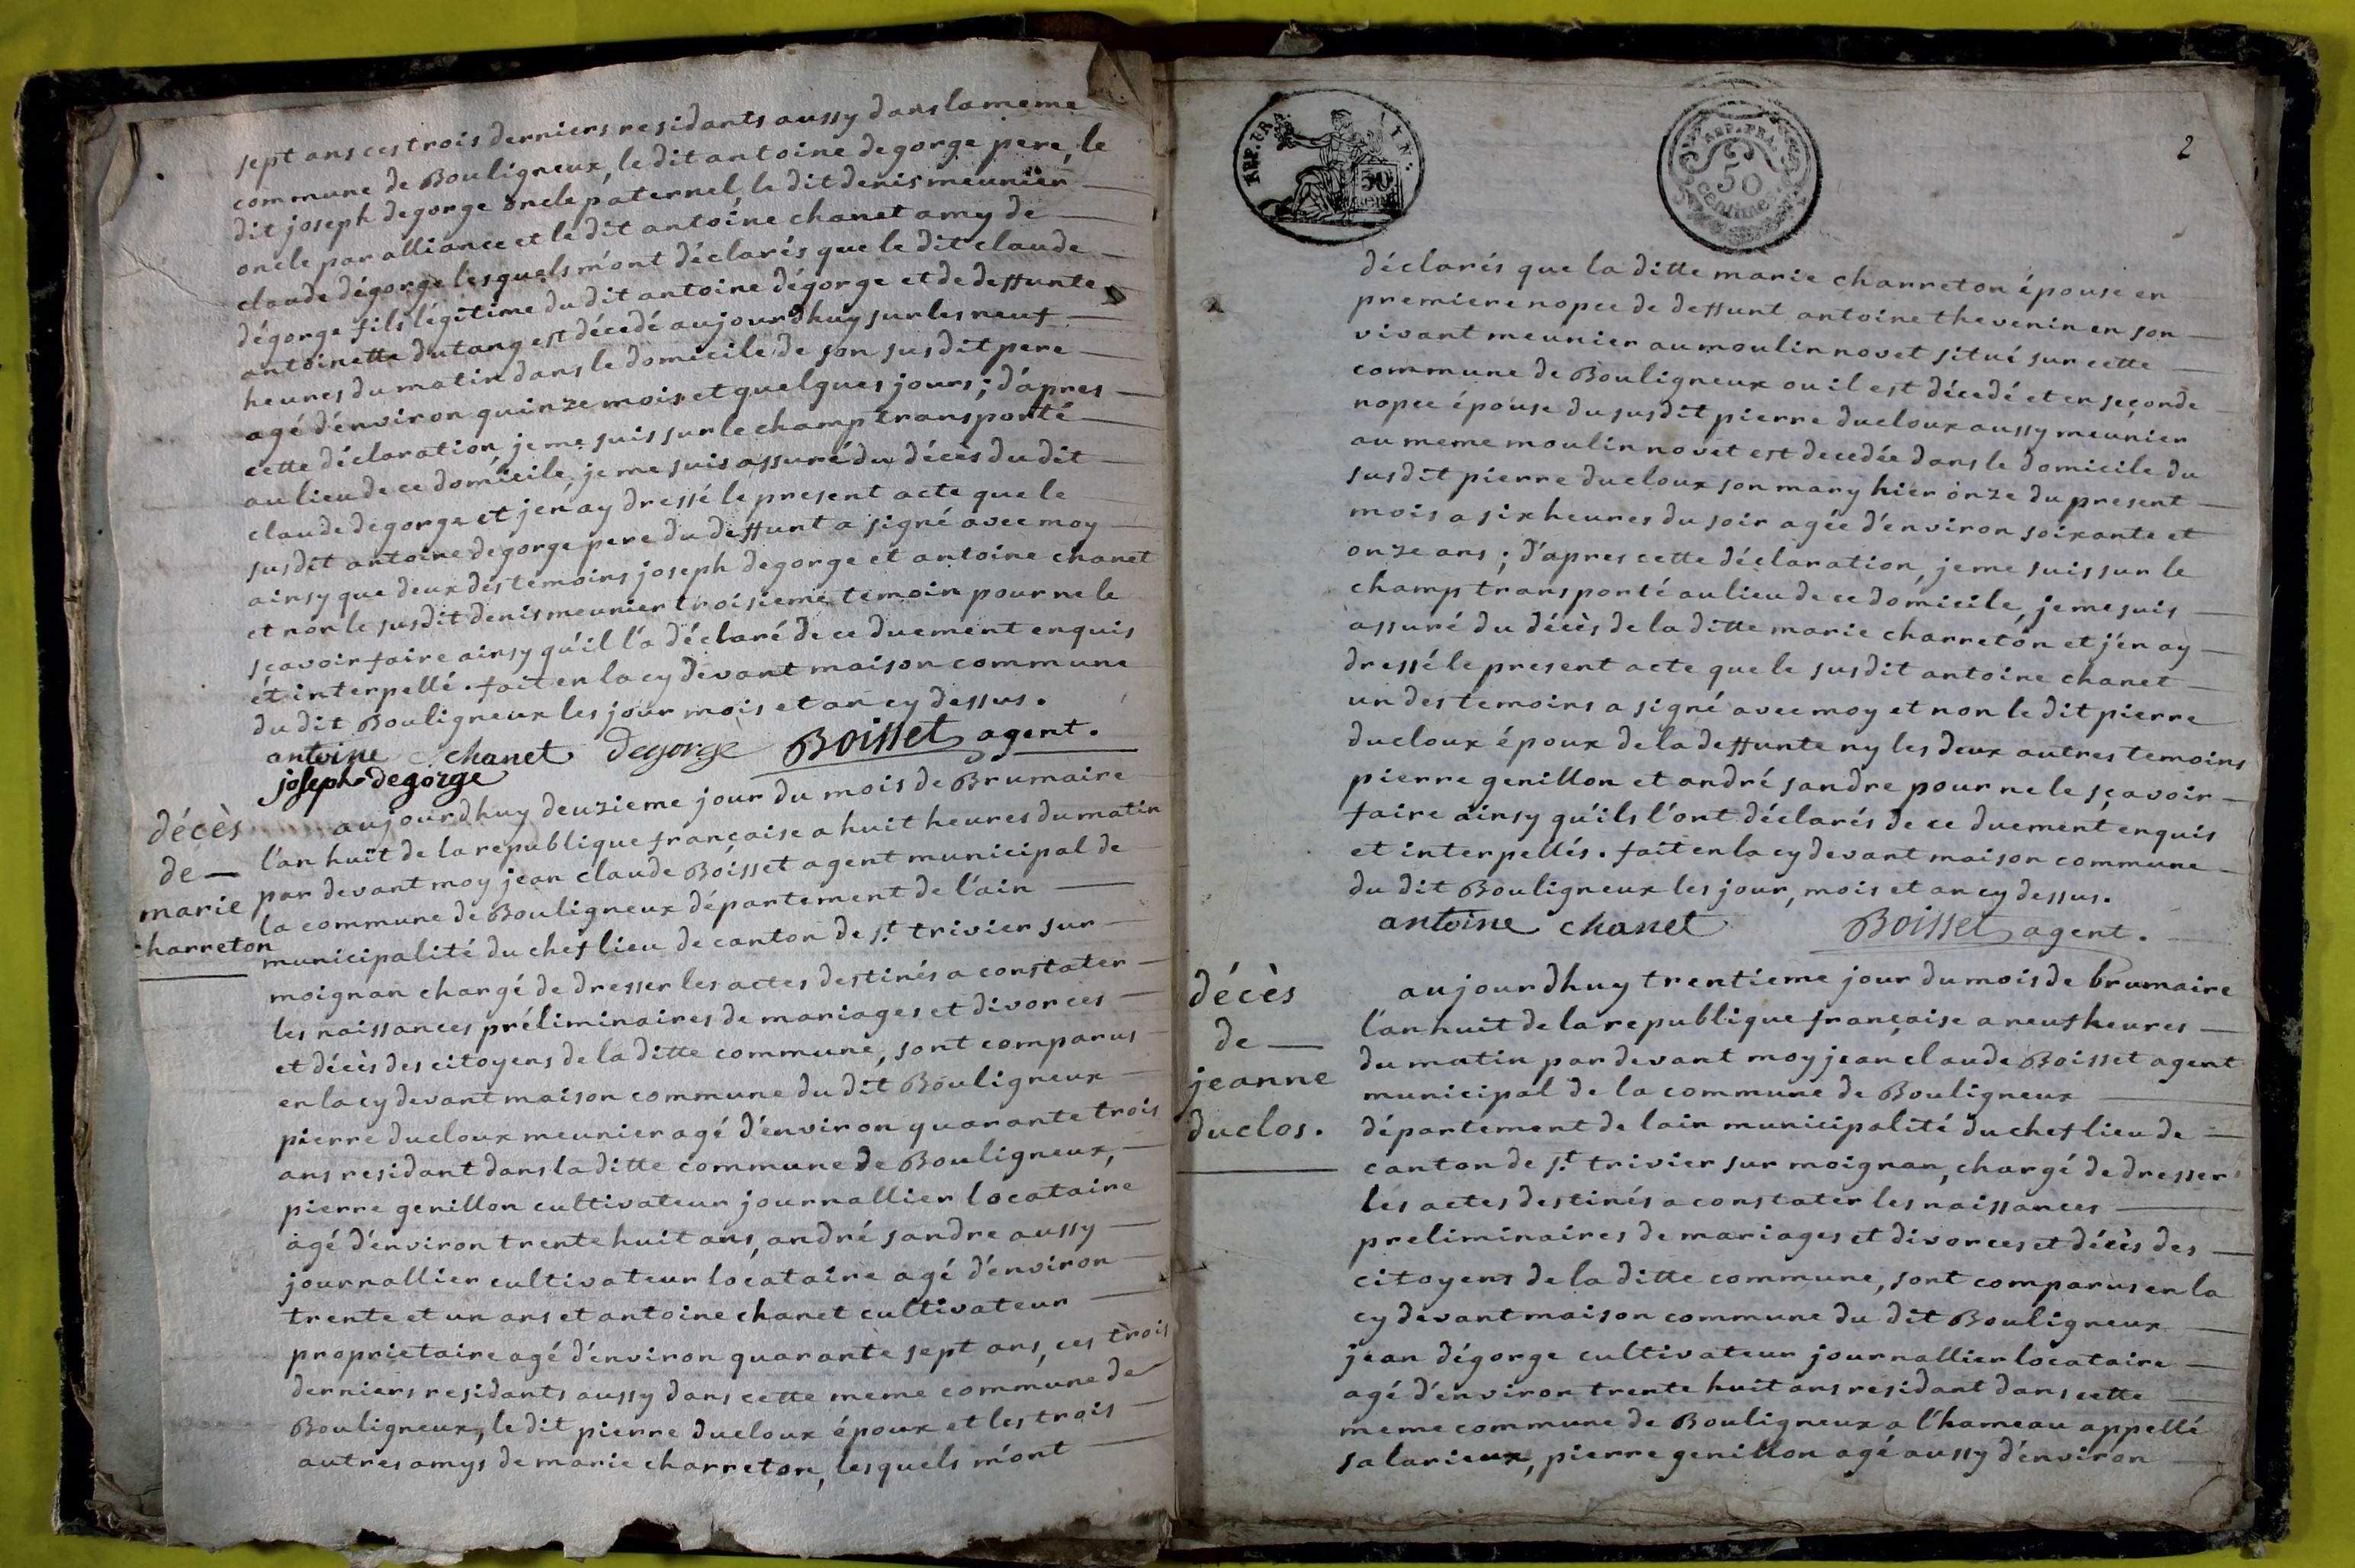 sept ans ces trois derniers residants aussy dans la meme
commune de Bouligneux, le dit antoine degorge pere, le
dit joseph degorge oncle paternel, le dit denis meunier
oncle par alliance et le dit antoine chanet amy de
claude dégorge lesquels m'ont déclarés que le dit claude
dégorge fils légitime du dit antoine dégorge et de deffunte
antoinette dutang est décedé aujourdhuy sur les neuf
heures du matin dans le domicile de son susdit pere
agé d'environ quinze mois et quelques jours; d'apres
cette déclaration, je me suis sur le champ transporté
au lieu de ce domicile, je me suis assuré du décès du dit
claude degorge et j'en ay dressé le present acte que le
susdit antoine degorge pere du deffunt a signé avec moy
ainsy que deux des temoins joseph degorge et antoine chanet
et non le susdit denis meunier troisieme temoin pour ne le
sçavoir faire ainsy qu'il l'a déclaré de ce duement enquis
et interpellé. fait en la cy devant maison commune
du dit Bouligneux les jour mois et an cy dessus.
antoine chanet degorge Boisset agent.
joseph degorge
décès
de
marie
charreton
aujourdhuy deuzieme jour du mois de Brumaire
l'an huit de la republique française a huit heures du matin
par devant moy jean claude Boisset agent municipal de
la commune de Bouligneux département de l'ain
municipalité du chef lieu de canton de st. trivier sur
moignan chargé de dresser les actes destinés a constater
les naissances préliminaires de mariages et divorces
et décès des citoyens de la ditte commune, sont comparus
en la cy devant maison commune du dit Bouligneux
pierre ducloux meunier agé d'environ quarante trois
ans residant dans la ditte commune de Bouligneux,
pierre genillon cultivateur journallier locataire
agé d'environ trente huit ans, andré sandre aussy
journallier cultivateur locataire agé d'environ
trente et un ans et antoine chanet cultivateur
proprietaire agé d'environ quarante sept ans, ces trois
derniers residants aussy dans cette meme commune de
Bouligneux, le dit pierre ducloux époux et les trois
autres amys de marie charreton, lesquels m'ont
REP. FRA.
50
REP. FRA.
50
centime
2
déclarés que la ditte marie charreton épouse en
premiere nopce de deffunt antoine thevenin en son
vivant meunier au moulin novet situé sur cette
commune de Bouligneux ou il est décedé et en seconde
nopce épouse du susdit pierre ducloux aussy meunier
au meme moulin novet est decedée dans le domicile du
susdit pierre ducloux son mary hier onze du present
mois a six heures du soir agée d'environ soixante et
onze ans; d'apres cette déclaration, je me suis sur le
champ transporté au lieu de ce domicile, je me suis
assuré du décès de la ditte marie charreton et j'en ay
dressé le present acte que le susdit antoine chanet
un des temoins a signé avec moy et non le dit pierre
ducloux époux de la deffunte ny les deux autres temoins
pierre genillon et andré sandre pour ne le sçavoir
faire ainsy qu'ils l'ont déclarés de ce duement enquis
et interpellés. fait en la cy devant maison commune
du dit Bouligneux les jour, mois et an cy dessus.
antoine chanet Boisset agent.
décès
de
jeanne
duclos.
aujourdhuy trentieme jour du mois de brumaire
l'an huit de la republique française a neuf heures
du matin par devant moy jean claude Boisset agent
municipal de la commune de Bouligneux
département de lain municipalité du chef lieu de
canton de st. trivier sur moignan, chargé de dresser
les actes destinés a constater les naissances
preliminaires de mariages et divorces et décès des
citoyens de la ditte commune, sont comparus en la
cy devant maison commune du dit Bouligneux
jean dégorge cultivateur journallier locataire
agé d'environ trente huit ans residant dans cette
meme commune de Bouligneux a l'hameau appellé
salarieux, pierre genillon agé aussy d'environ